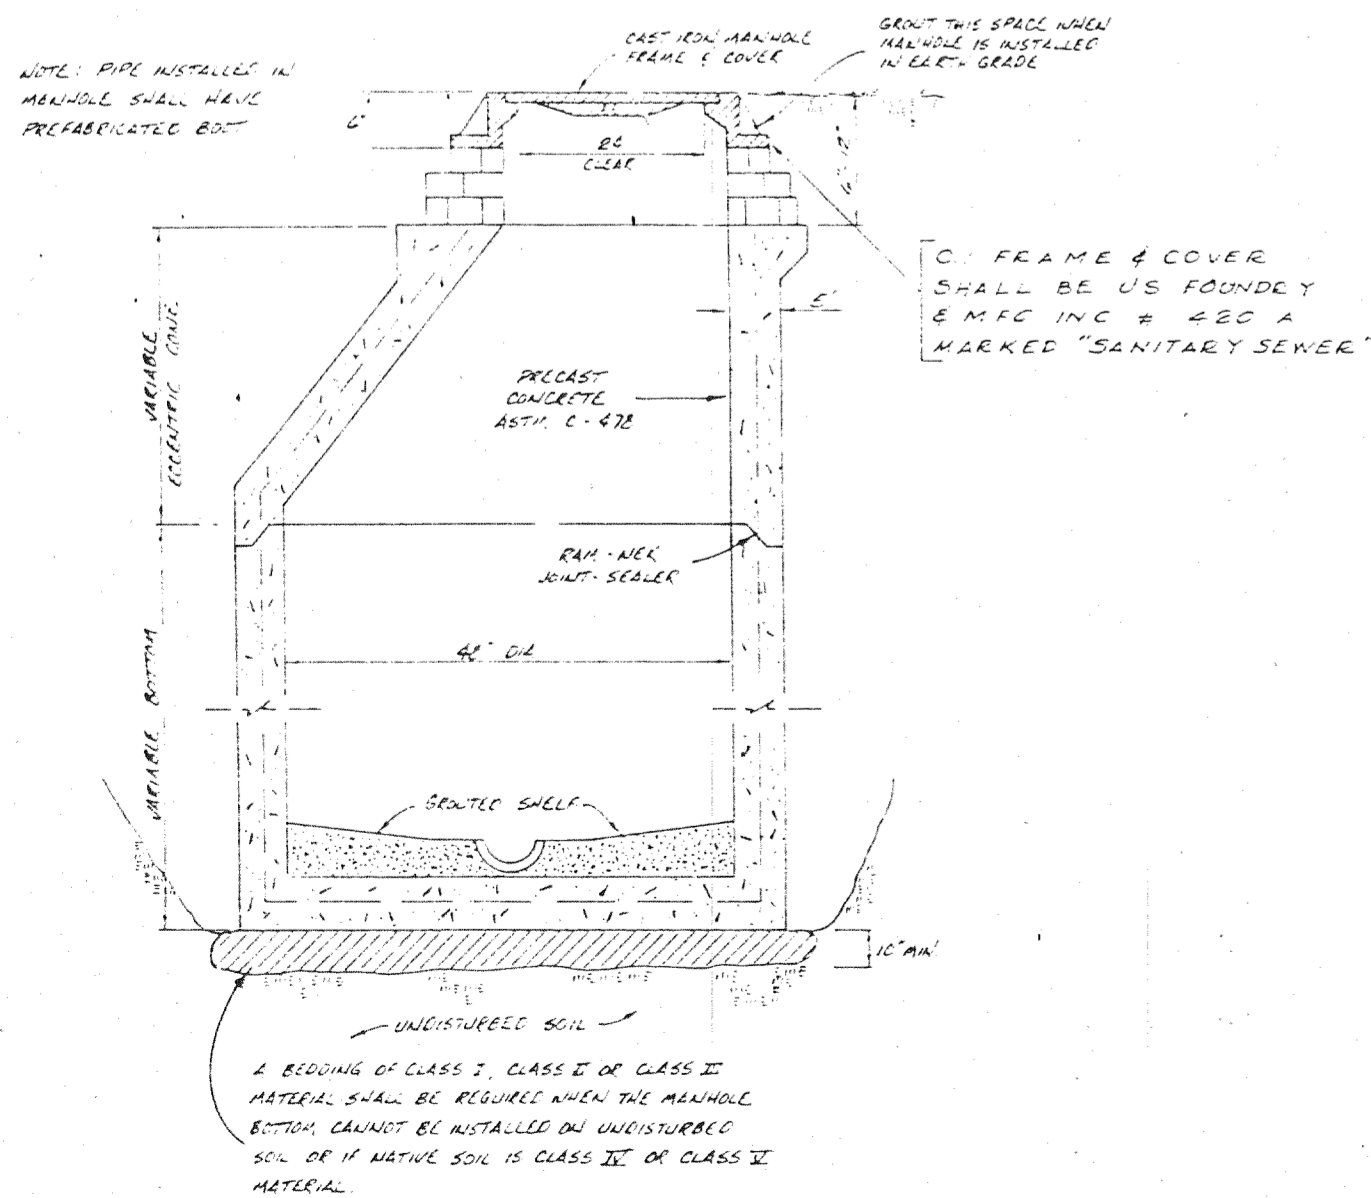 NOTE: PIPE INSTALLED IN
MANHOLE SHALL HAVE
PREFABRICATED BOOT
CAST IRON MANHOLE
FRAME & COVER
GROUT THIS SPACE WHEN
MANHOLE IS INSTALLED
IN EARTH GRADE
6"
24
CLEAR
6"-12"
C.I. FRAME & COVER
SHALL BE US FOUNDRY
& MFG INC # 420 A
MARKED "SANITARY SEWER"
5"
VARIABLE
ECCENTRIC CONE
PRECAST
CONCRETE
ASTM. C-478
RAM-NEK
JOINT-SEALER
48" DIA
VARIABLE BOTTOM
GROUTED SHELF
10" MIN.
UNDISTURBED SOIL
A BEDDING OF CLASS I, CLASS II OR CLASS III
MATERIAL SHALL BE REQUIRED WHEN THE MANHOLE
BOTTOM, CANNOT BE INSTALLED ON UNDISTURBED
SOIL OR IF NATIVE SOIL IS CLASS IV OR CLASS V
MATERIAL.